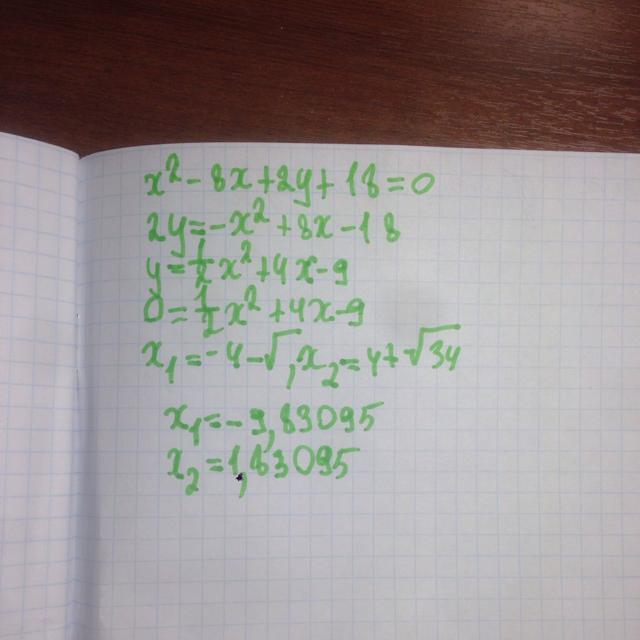 x²-8x+2y+18=0
2y=-x²+8x-18
y=½x²+4x-9
0=½x²+4x-9
x₁=-4-√,x₂=4+√34
x₁=-9,83095
x₂=1,83095